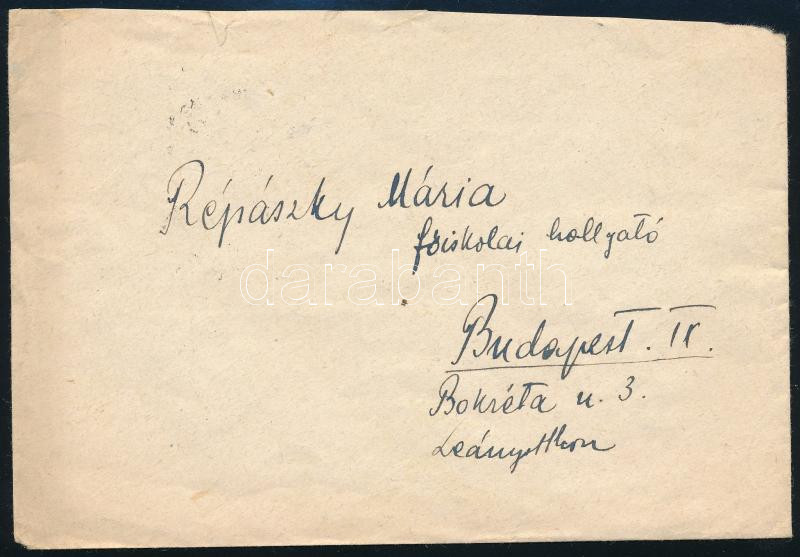 Répászky Mária
főiskolai hallgató
darabanth
Budapest. IX.
Bokréta u. 3.
Leányotthon